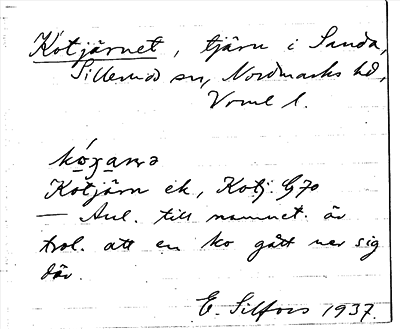 Kotjärnet, tjärn i Sanda,
Sillerud sn, Nordmarks hd,
Vrml l.
Kotjärn ek, Kotj. G70
— Anl. till namnet är
trol. att en ko gått ner sig
där.
E. Silfors 1937.